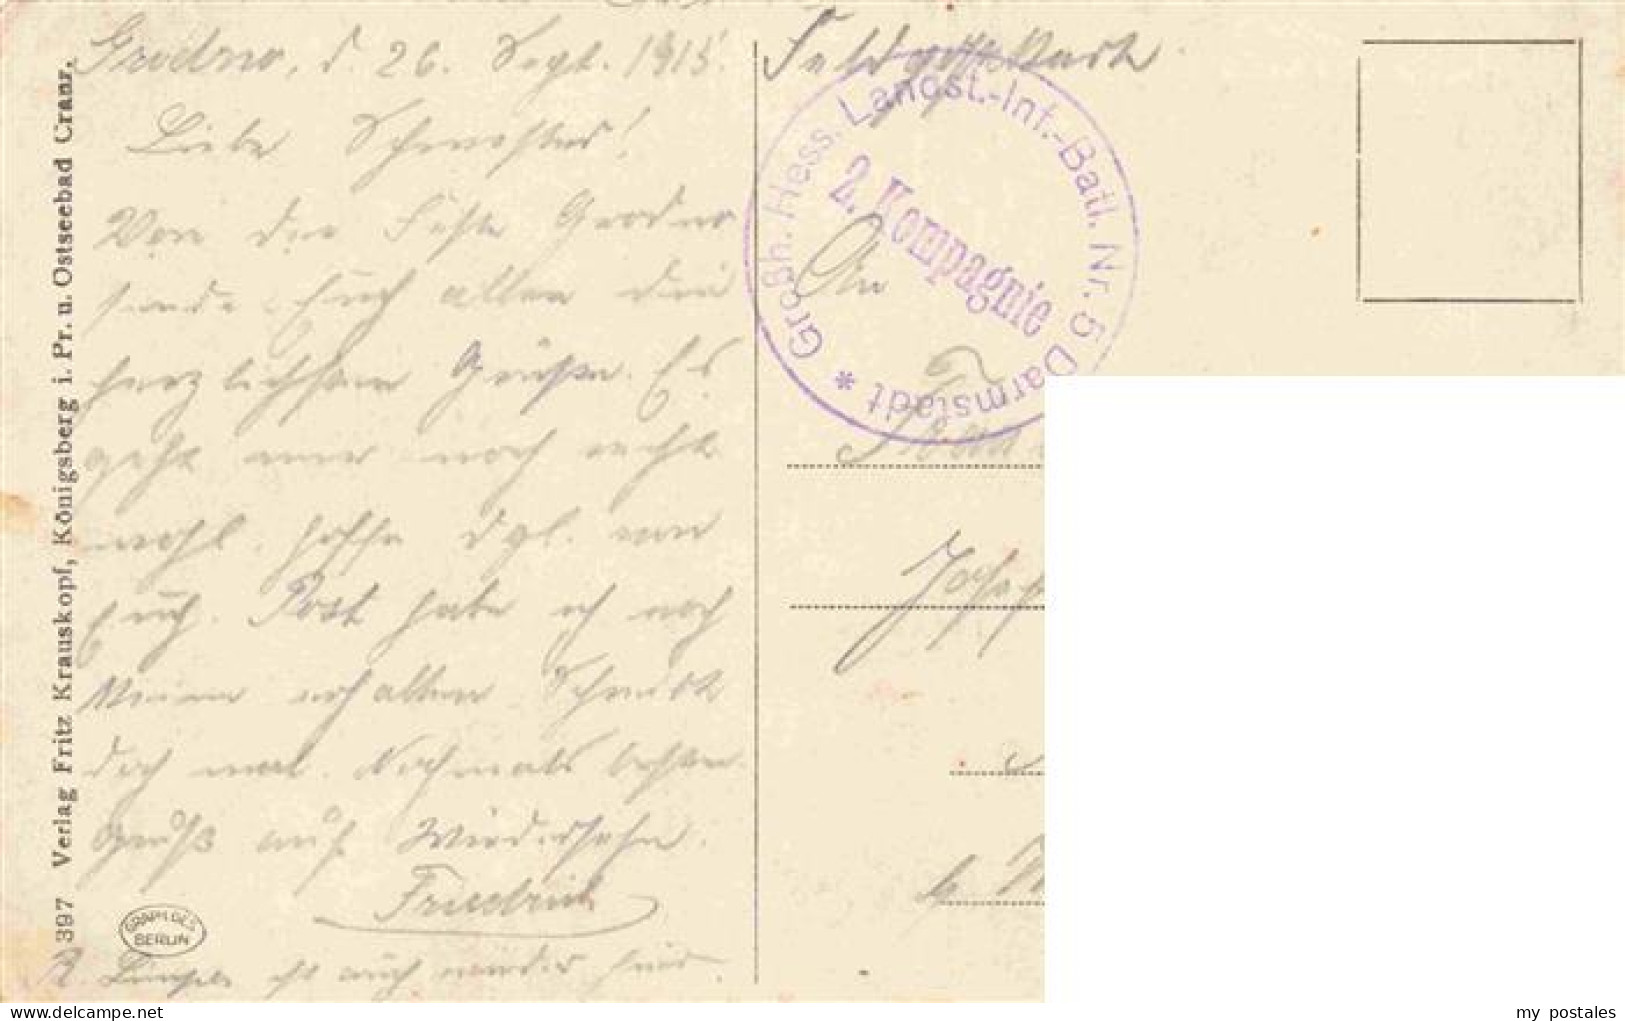 Grodno, d. 26. Sept. 1915.
Liebe Schwester!
Von der Feste Grodno
sende Euch allen die
herzlichsten Grüße. Es
geht mir noch recht
wohl, hoffe dgl. von
Euch. Post habe ich noch
keine erhalten. Schreibt
doch mal. Nochmals besten
Gruß auf Wiedersehn.
Friedrich
ist auch wieder hier.
397 Verlag Fritz Krauskopf, Königsberg i. Pr. u. Ostseebad Cranz.
GRAPH. GES. BERLIN
Feldpostkarte
Großh. Hess. Landst.-Inf.-Batl. Nr. 5 Darmstadt *
2. Kompagnie
An
Frau
Josef
b.
my postales
oldthing.com